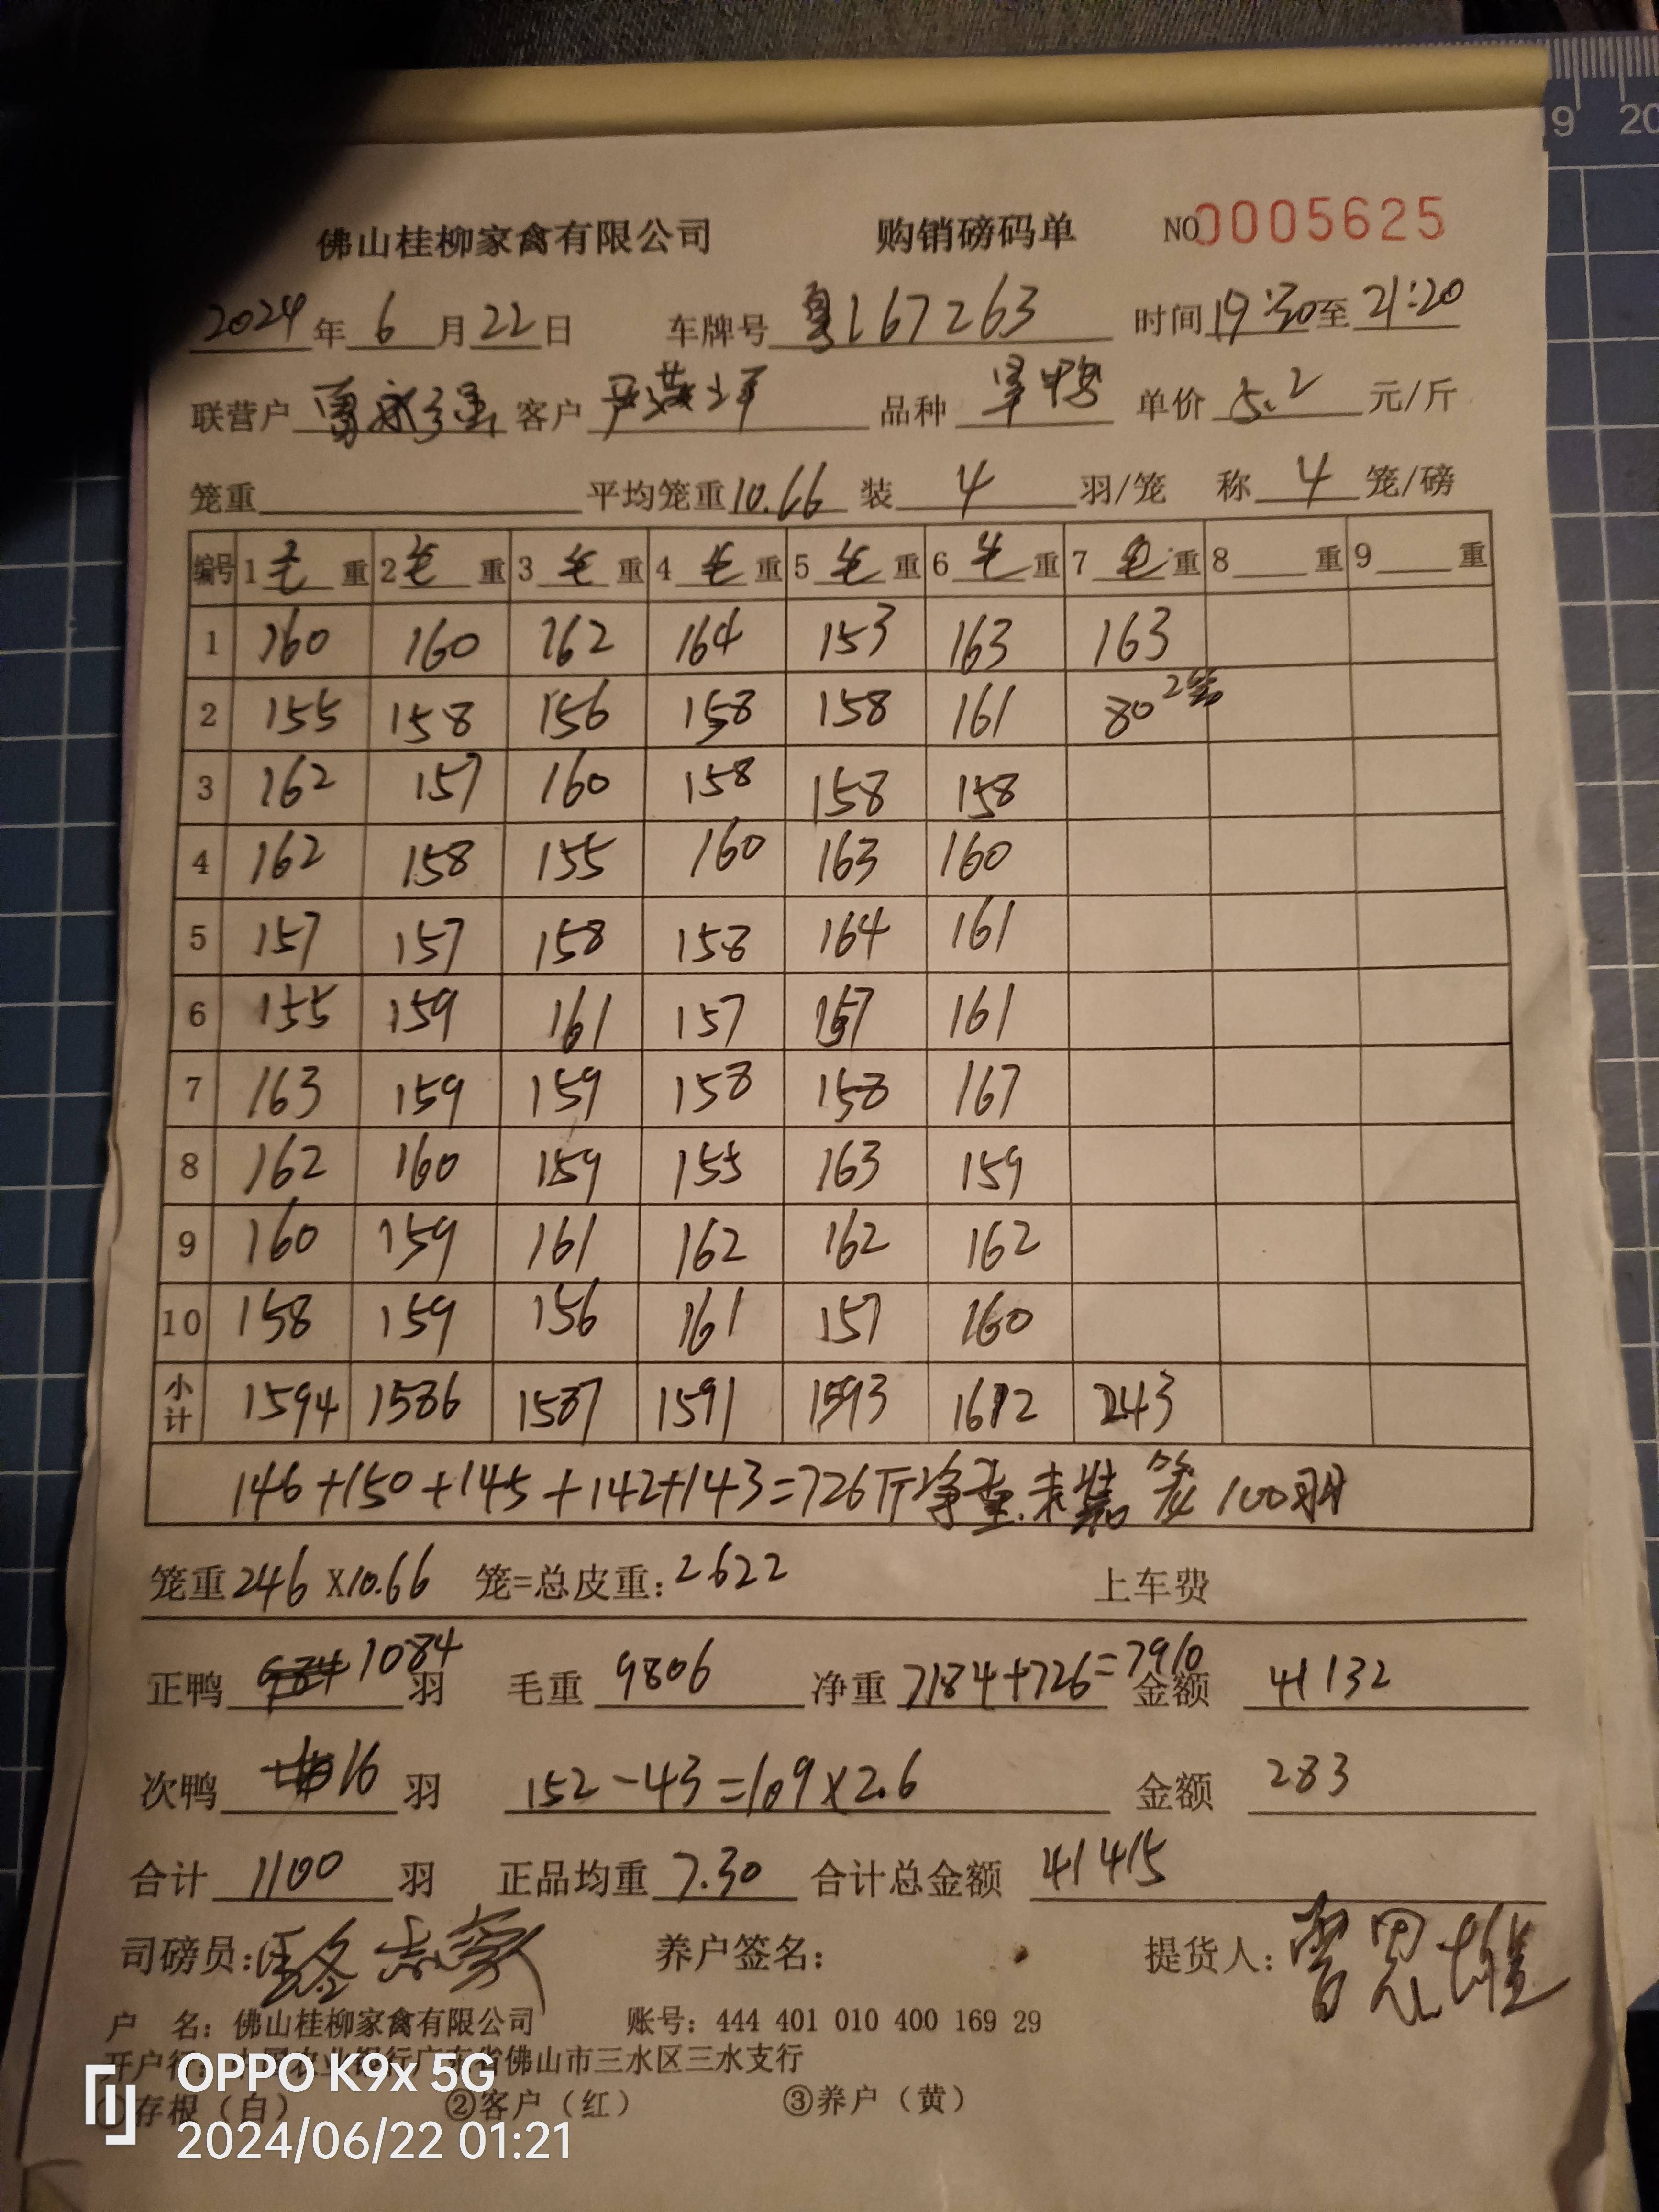 19 20
佛山桂柳家禽有限公司 购销磅码单 NO 0005625
2024年6月22日 车牌号 粤L67263 时间19:30至21:20
联营户 客户 品种 单价 5.2 元/斤
笼重 平均笼重10.66 装 4 羽/笼 称 4 笼/磅
编号 1毛重 2毛重 3毛重 4毛重 5毛重 6毛重 7毛重 8重 9重
1 160 160 162 164 153 163 163
2 155 158 156 158 158 161 80 2笼
3 162 157 160 158 158 158
4 162 158 155 160 163 160
5 157 157 158 158 164 161
6 155 159 161 157 157 161
7 163 159 159 158 158 167
8 162 160 159 155 163 159
9 160 159 161 162 162 162
10 158 159 156 161 157 160
小计 1594 1586 1587 1591 1593 1612 243
146+150+145+142+143=726斤净重.未装笼100羽
笼重246×10.66 笼=总皮重:2622 上车费
正鸭 984 1084 羽 毛重 9806 净重 7184+726=7910 金额 41132
次鸭 16 羽 152-43=109×2.6 金额 283
合计 1100 羽 正品均重 7.30 合计总金额 41415
司磅员: 养户签名: 提货人:曾思雄
户 名:佛山桂柳家禽有限公司 账号:444 401 010 400 169 29
开户行:中国农业银行广东省佛山市三水区三水支行
①存根(白) ②客户(红) ③养户(黄)
OPPO K9x 5G
2024/06/22 01:21